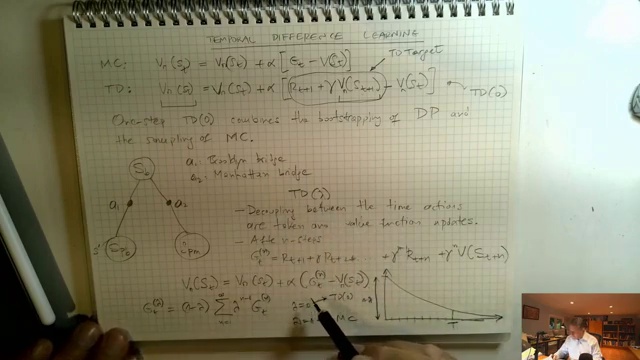 TEMPORAL DIFFERENCE LEARNING
TD Target
MC: Vπ(St) = Vπ(St) + α [Gt − V(St)]
TD: Vπ(St) = Vπ(St) + α [Rt+1 + γ Vπ(St+1) − Vπ(St)] TD(0)
One-step TD(0) combines the bootstrapping of DP and
the sampling of MC.
a1: Brooklyn bridge
a2: Manhattan bridge
S6
a1 a2
TD(λ)
- Decoupling between the time actions
are taken and value function updates.
- After n-steps
Gt(n) = Rt+1 + γ Rt+2 + γ^n-1 Rt+n + γ^n V(St+n)
Vπ(St) = Vπ(St) + α (Gt(n) − Vπ(St))
Gt(λ) = (1-λ) Σ n=1 ∞ λ^n-1 Gt(n)
λ=0 → TD(0)
MC
T